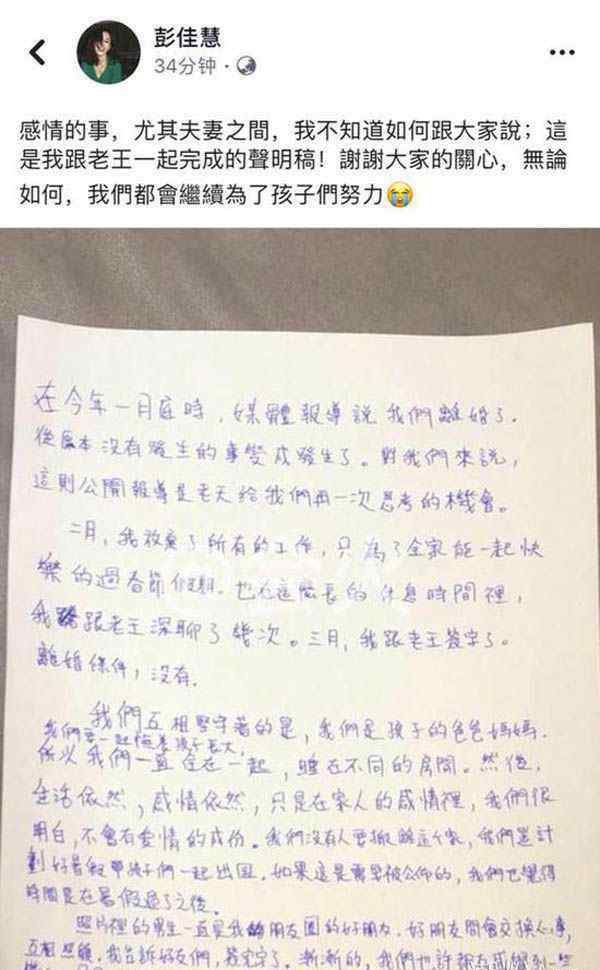 彭佳慧
34分钟
感情的事，尤其夫妻之間，我不知道如何跟大家說；這
是我跟老王一起完成的聲明稿！謝謝大家的關心，無論
如何，我們都會繼續為了孩子們努力😭
在今年一月底時，媒體報導說我們離婚了。
從原本沒有發生的事變成發生了。對我們來說，
這則公開報導是老天給我們再一次思考的機會。
二月，我放棄了所有的工作，只為了全家能一起快
樂的過春節假期。也在這麼長的休息時間裡，
我跟老王深聊了幾次。三月，我跟老王簽字了。
離婚條件，沒有。
我們互相堅守著的是，我們是孩子的爸爸媽媽，
我們要一起陪著孩子長大，
所以我們一直住在一起，睡在不同的房間。然後，
生活依然，感情依然，只是在家人的感情裡，我們很
明白，不會有愛情的成份。我們沒有人要搬離這個家，我們是計
劃好暑假帶孩子們一起出國。如果這是需要被公佈的，我們也覺得
時間是在暑假過了之後。
照片裡的男生一直是我朋友圈的好朋友，好朋友間會交換心事，
互相照顧，我告訴好友們，簽完字了。漸漸的，我們也許都在感觸到一些